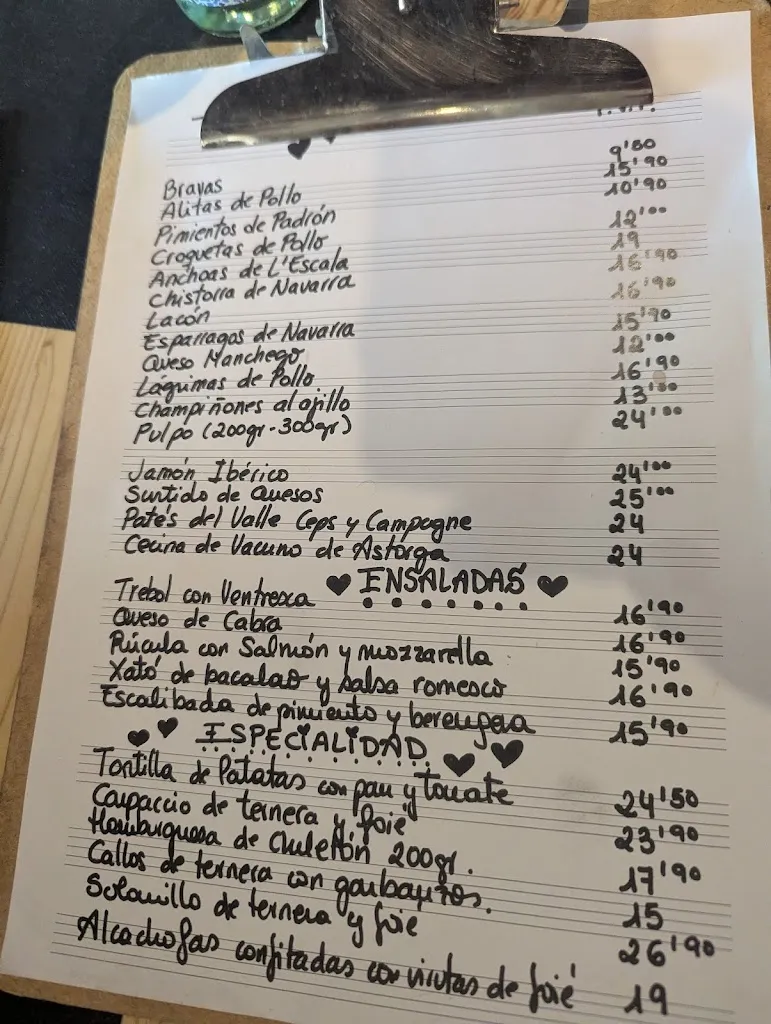 Bravas 9'50
Alitas de Pollo 15'90
Pimientos de Padrón 10'90
Croquetas de Pollo 12'00
Anchoas de L'Escala 19
Chistorra de Navarra 16'90
Lacón 16'90
Esparragos de Navarra 15'90
Queso Manchego 12'00
Lágrimas de Pollo 16'90
Champiñones al ajillo 13'50
Pulpo (200gr-300gr) 24'00
Jamón Ibérico 24'00
Surtido de Quesos 25'00
Patés del Valle Ceps y Campagne 24
Cecina de Vacuno de Astorga 24
ENSALADAS
Trebol con Ventresca 16'90
Queso de Cabra 16'90
Rúcula con Salmón y mozzarella 15'90
Xató de bacalao y salsa romesco 16'90
Escalibada de pimiento y berengena 15'90
ESPECIALIDAD
Tortilla de Patatas con pan y tomate 24'50
Carpaccio de ternera y foie 23'90
Hamburguesa de Chuletón 200gr. 17'90
Callos de ternera con garbanzos. 15
Solomillo de ternera y foie 26'90
Alcachofas confitadas con virutas de foié 19